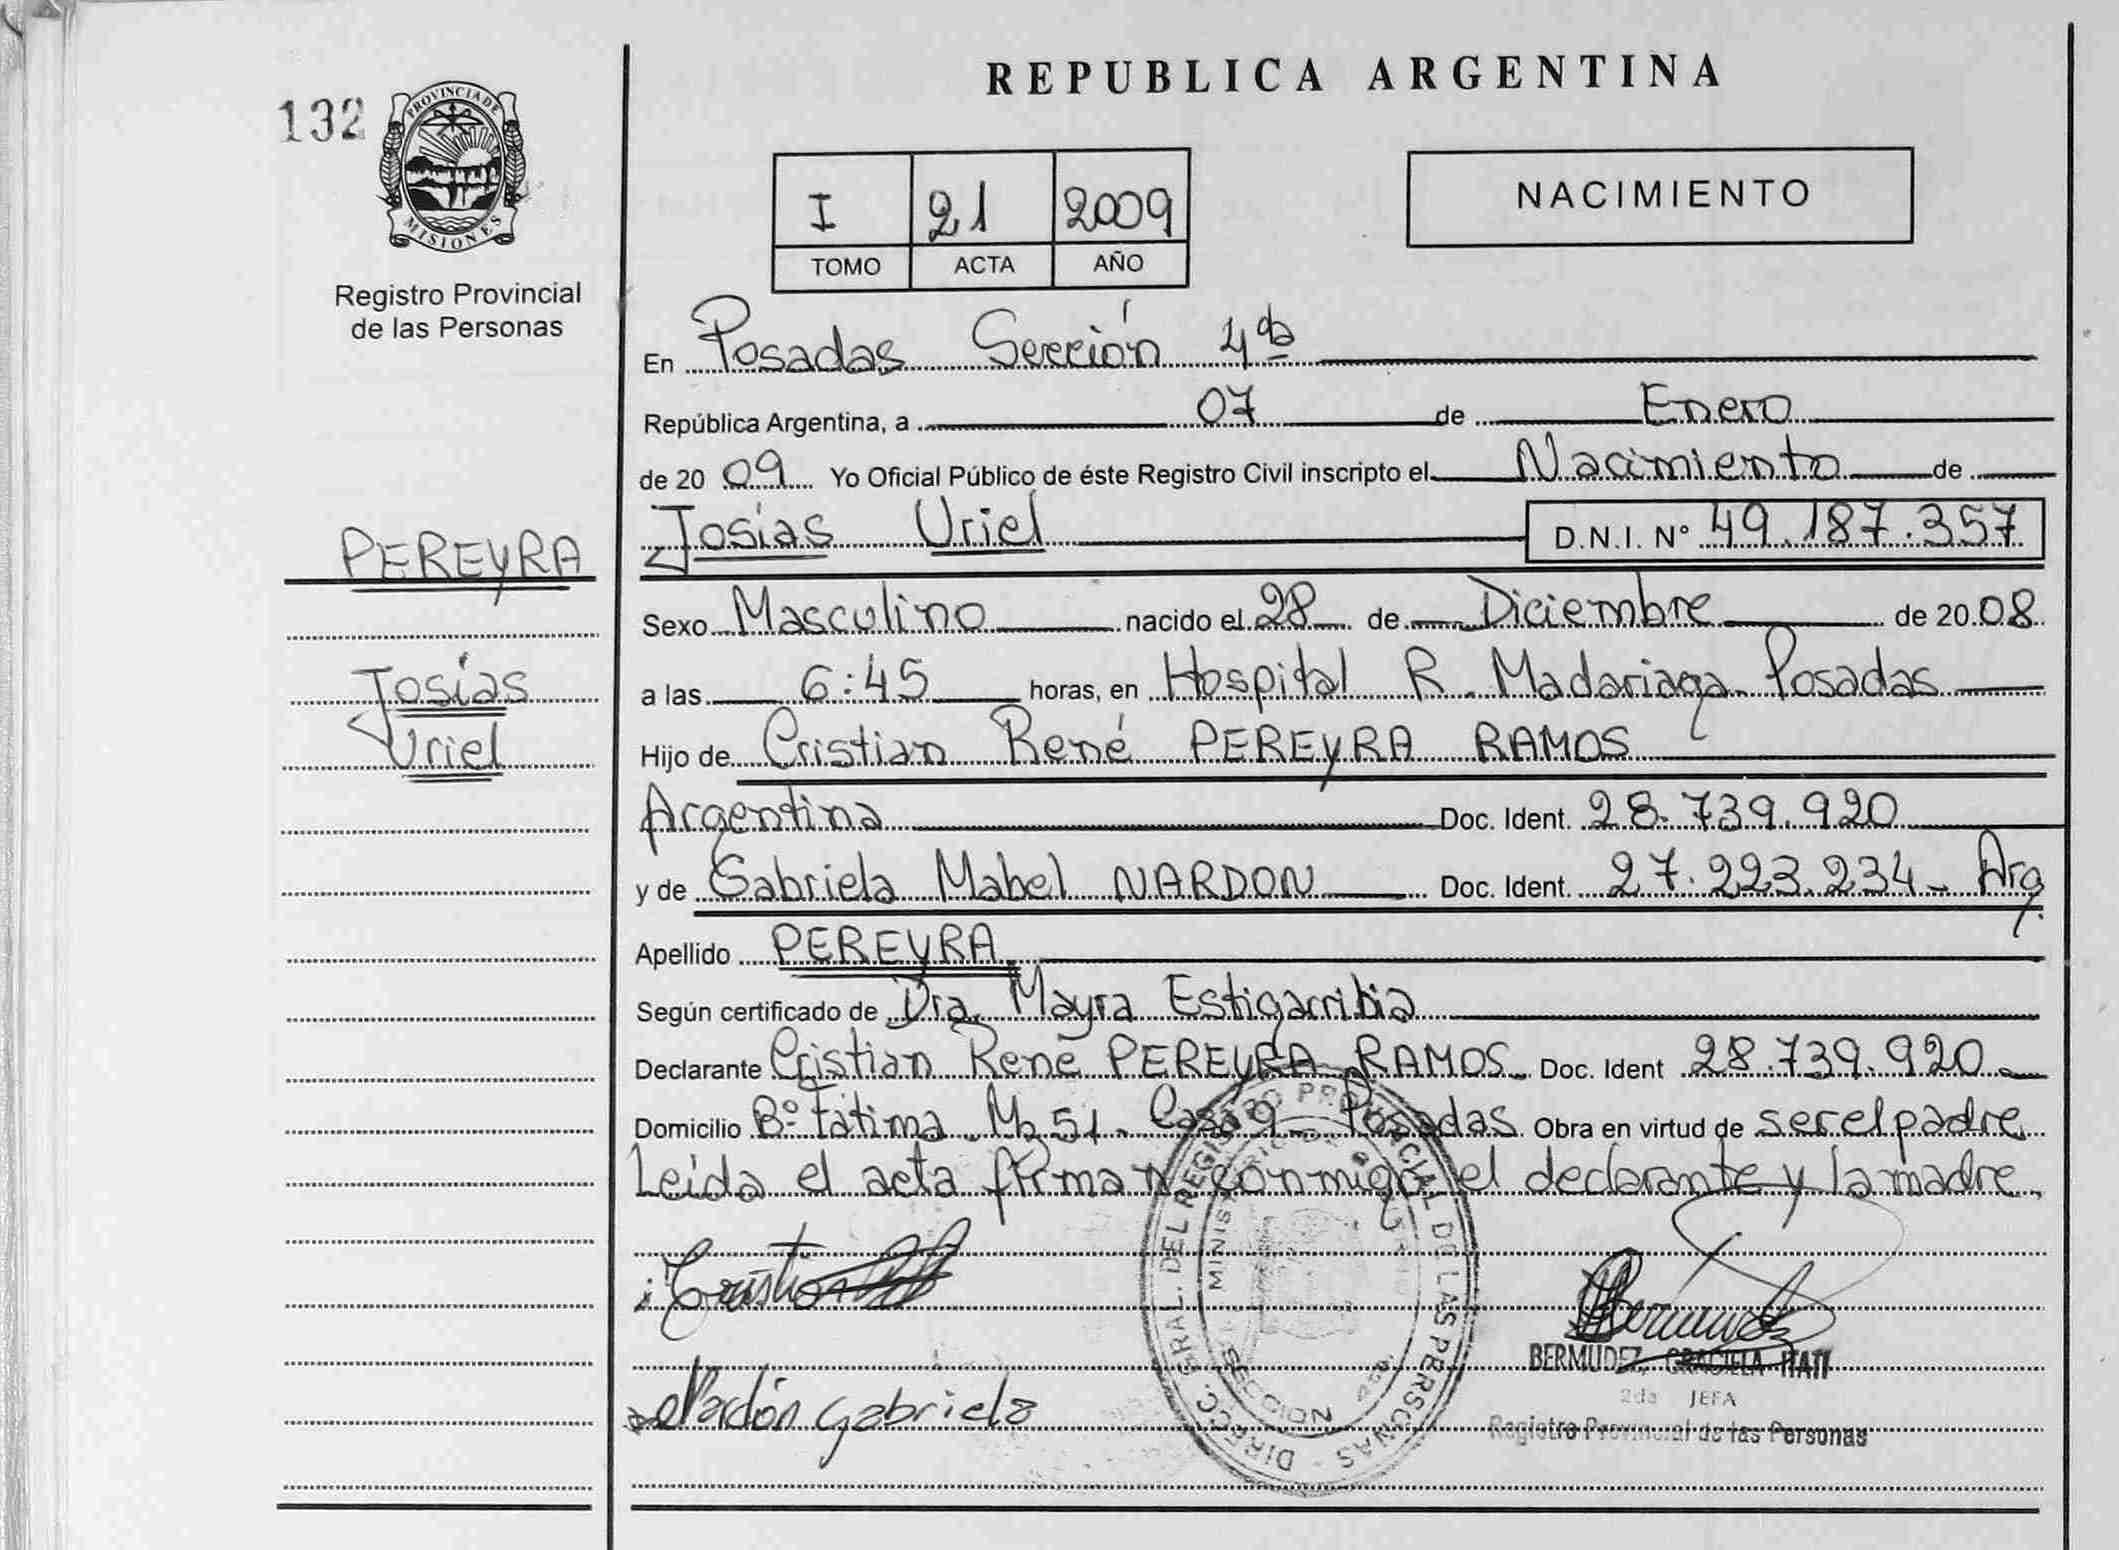 132
PROVINCIA DE
MISIONES
Registro Provincial
de las Personas
PEREYRA
Josías
Uriel
REPUBLICA ARGENTINA
I 21 2009
TOMO ACTA AÑO
NACIMIENTO
En Posadas Sección 4ta
República Argentina, a 07 de Enero
de 20 09 Yo Oficial Público de éste Registro Civil inscripto el Nacimiento de
Josías Uriel D.N.I. Nº 49.187.357
Sexo Masculino nacido el 28 de Diciembre de 20 08
a las 6:45 horas, en Hospital R. Madariaga Posadas
Hijo de Cristian René PEREYRA RAMOS
Argentina Doc. Ident. 28.739.920
y de Gabriela Mabel NARDON Doc. Ident. 27.223.234- Arg.
Apellido PEREYRA
Según certificado de Dra. Mayra Estigarribia
Declarante Cristian René PEREYRA RAMOS Doc. Ident 28.739.920
Domicilio Bº Fátima Mz 51 - Casa 9 - Posadas Obra en virtud de ser el padre
Leida el acta firman conmigo el declarante y la madre.
Cristian
Nardón Gabriela
DIRECC. GRAL. DEL REGISTRO PROVINCIAL DE LAS PERSONAS
SECCION 4ta
BERMUDEZ, GRACIELA ITATI
2da JEFA
Registro Provincial de las Personas